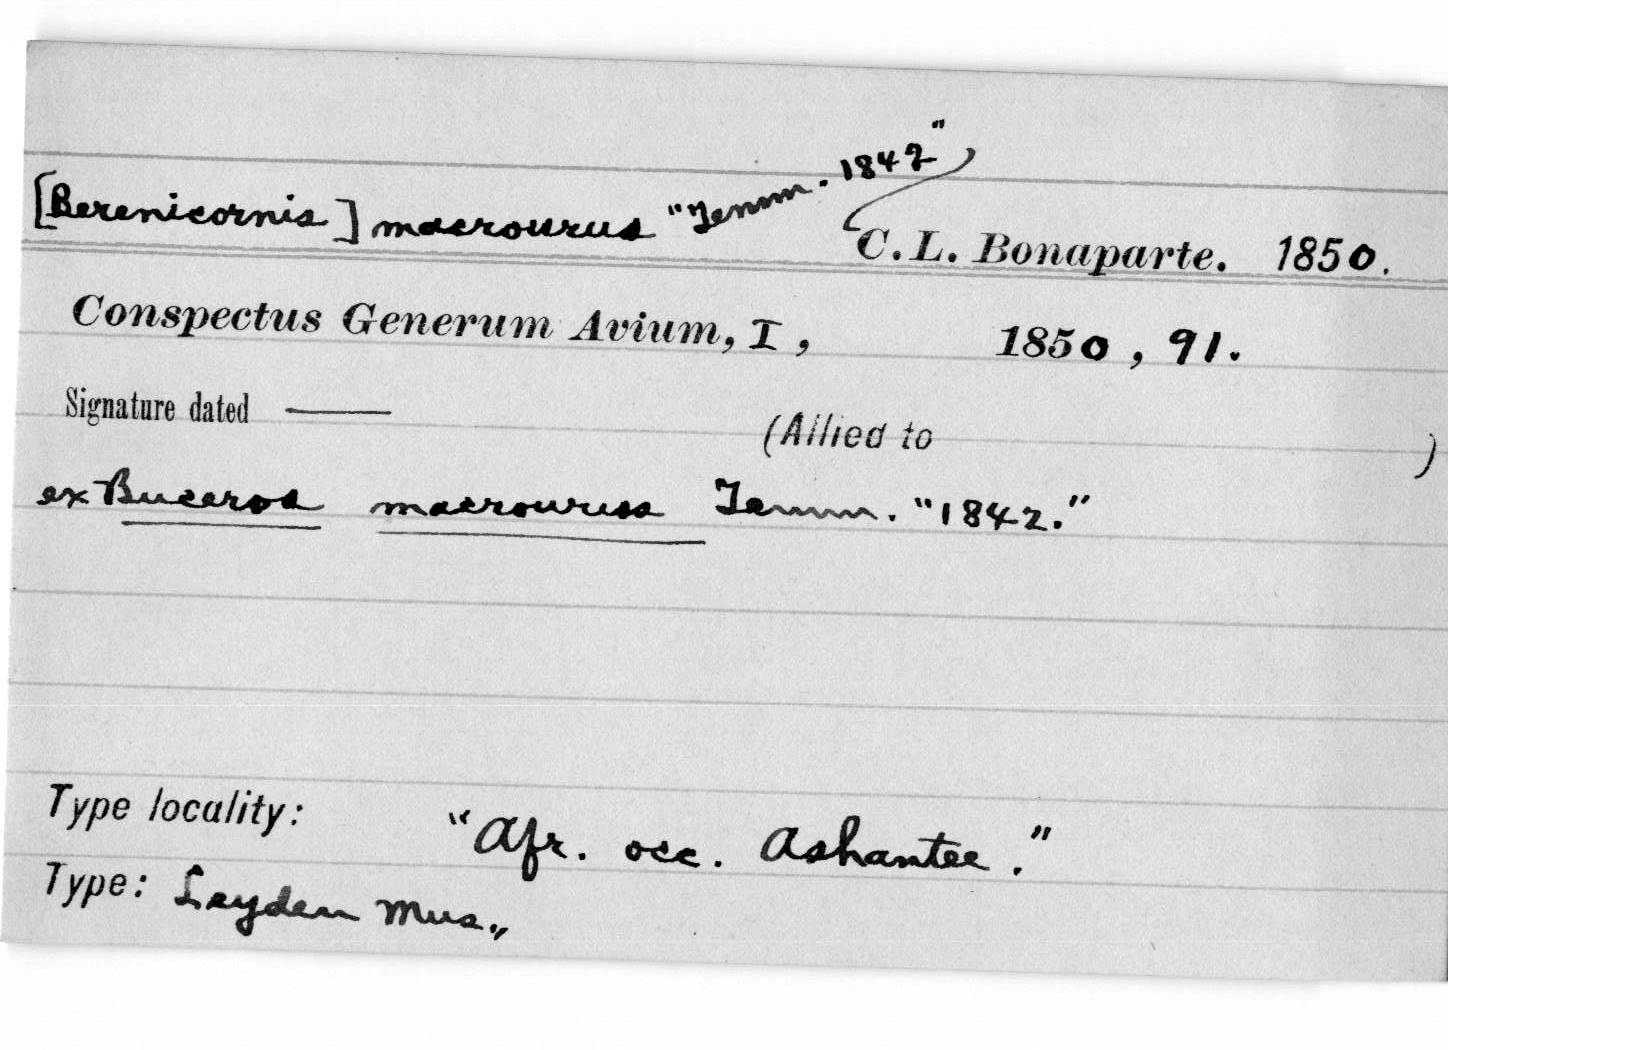 [Berenicornis] macrourus "Temm. 1842"
C. L. Bonaparte. 1850.
Conspectus Generum Avium, I, 1850, 91.
Signature dated ——— (Allied to )
ex Buceros macrourus Temm. "1842."
Type locality: "Afr. occ. Ashantee."
Type: Leyden Mus.,